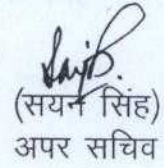 (सयन सिंह)
अपर सचिव